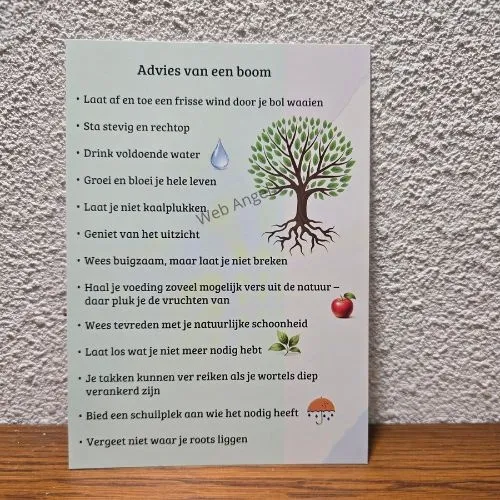 Advies van een boom
• Laat af en toe een frisse wind door je bol waaien
• Sta stevig en rechtop
• Drink voldoende water
• Groei en bloei je hele leven
• Laat je niet kaalplukken
• Geniet van het uitzicht
• Wees buigzaam, maar laat je niet breken
• Haal je voeding zoveel mogelijk vers uit de natuur –
daar pluk je de vruchten van
• Wees tevreden met je natuurlijke schoonheid
• Laat los wat je niet meer nodig hebt
• Je takken kunnen ver reiken als je wortels diep
verankerd zijn
• Bied een schuilplek aan wie het nodig heeft
• Vergeet niet waar je roots liggen
Web Angel